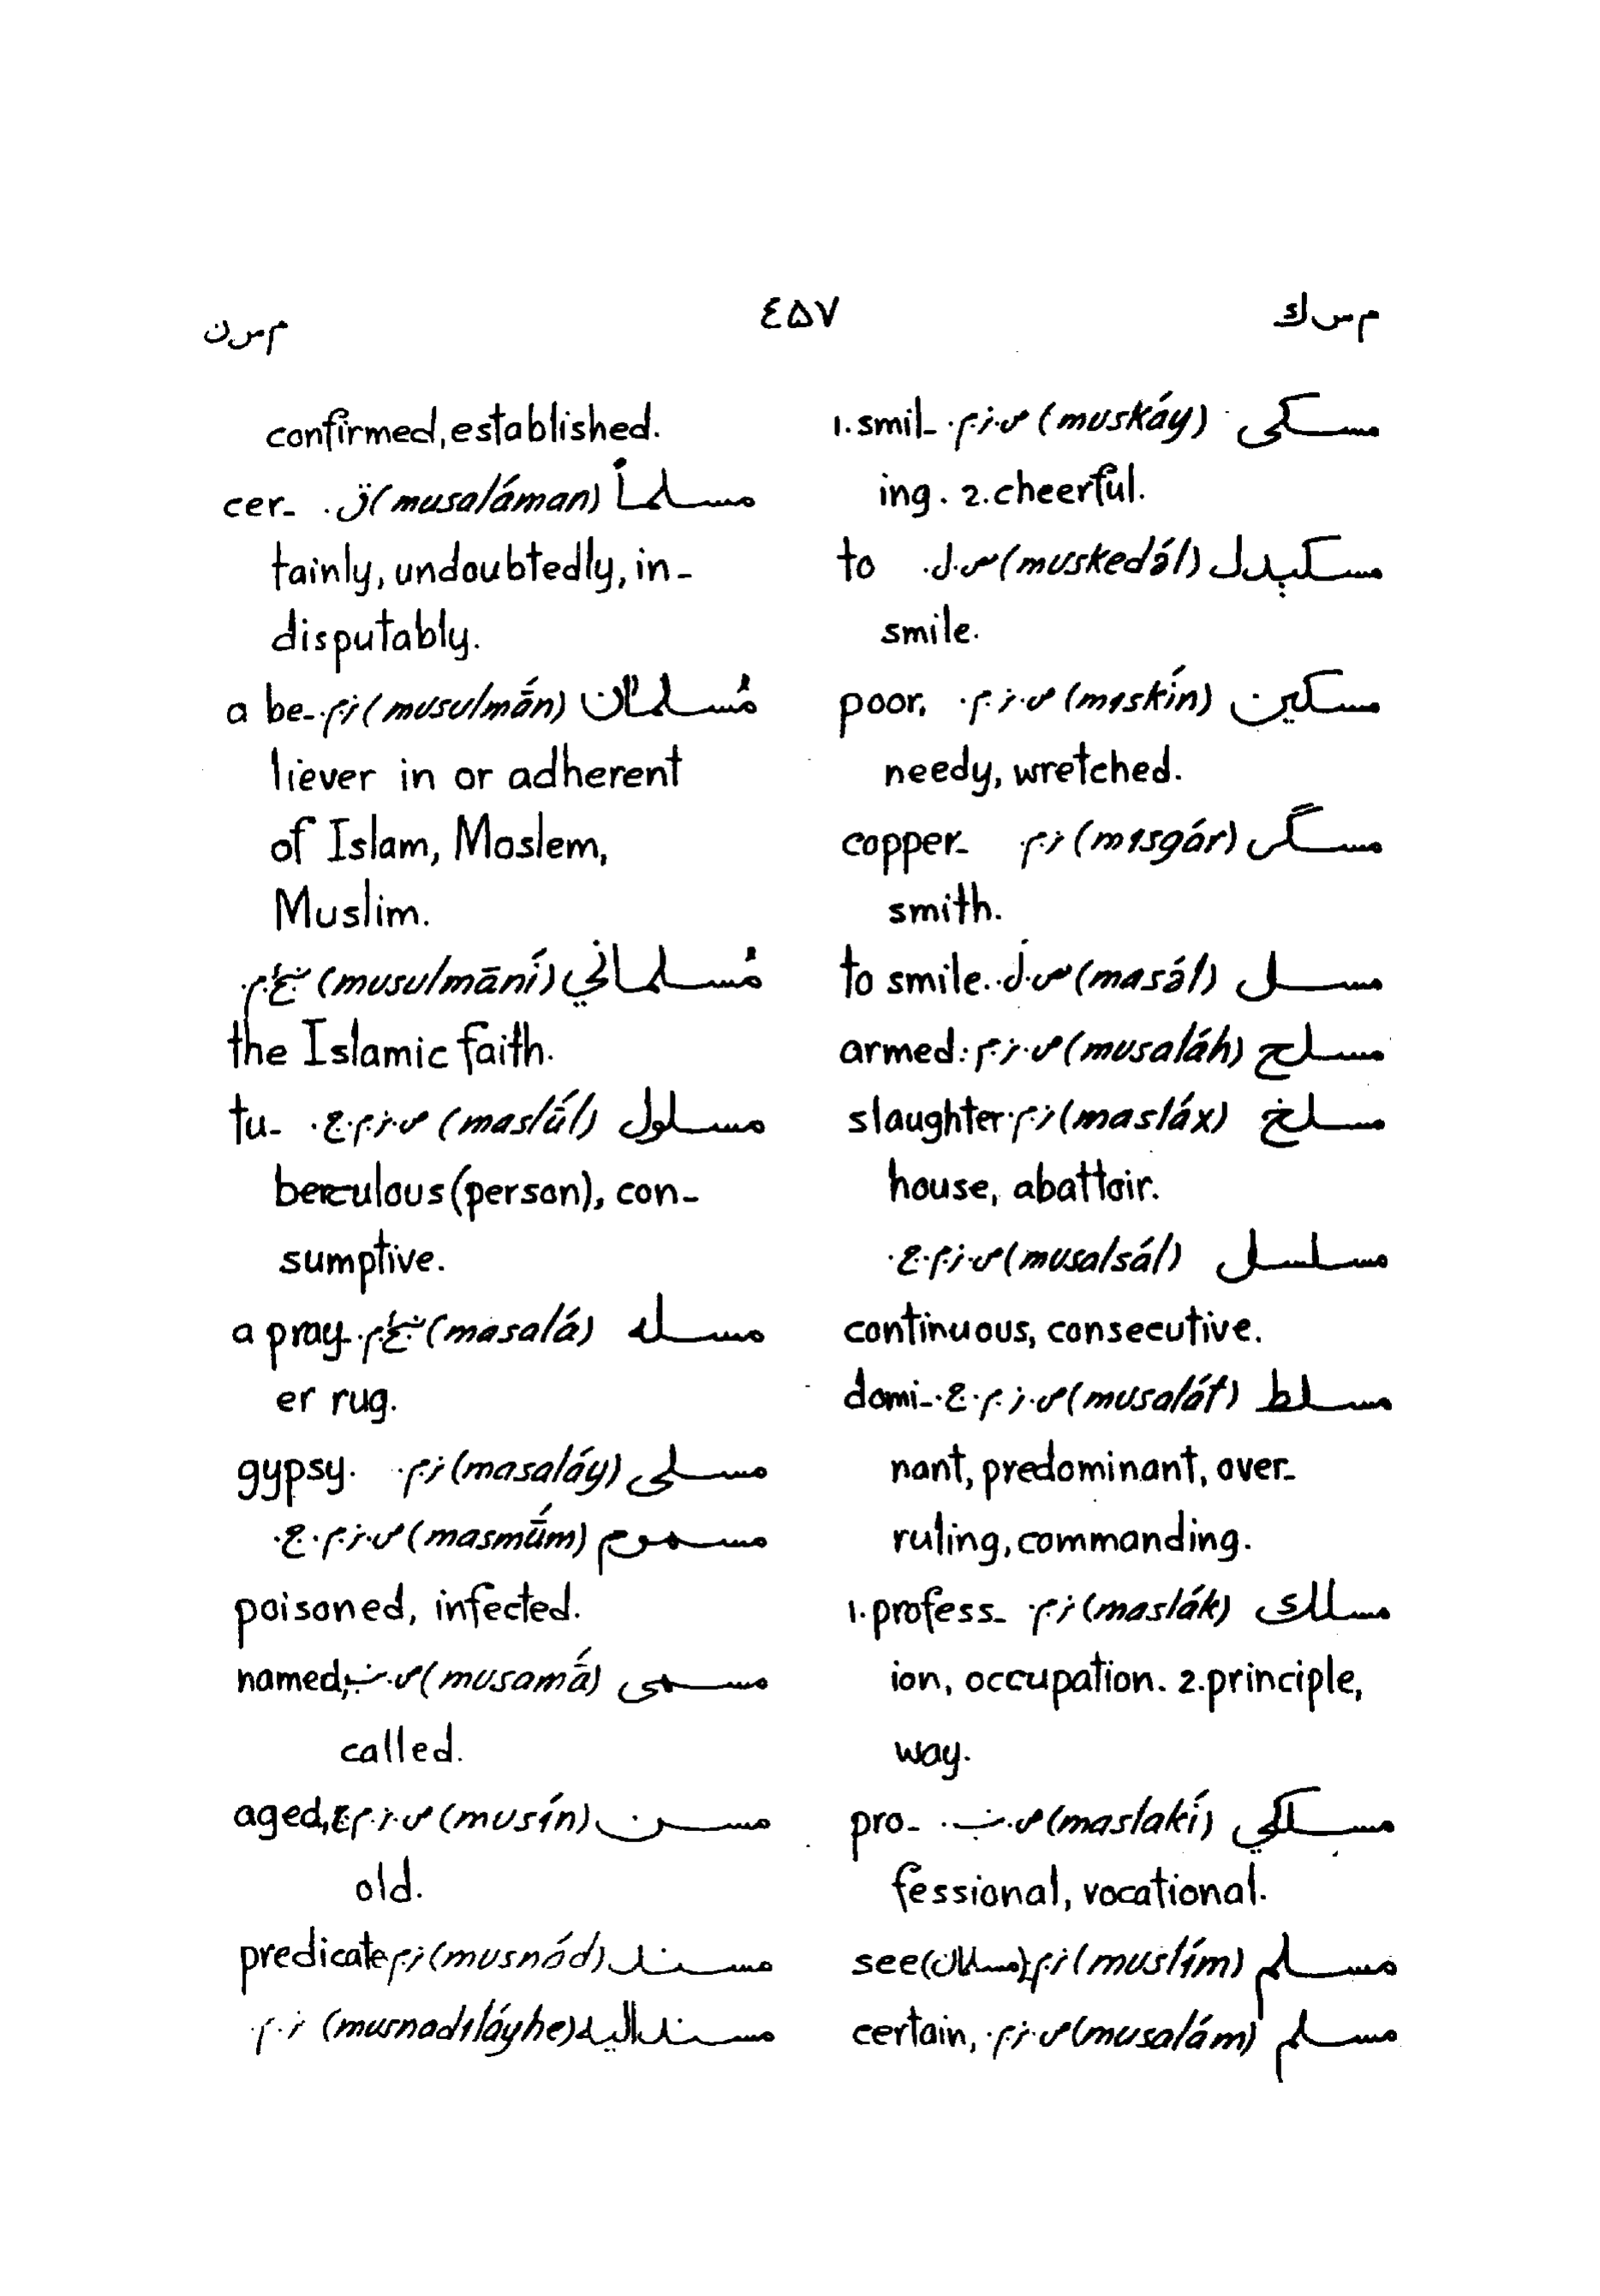 م س ك
٤۵۷
م س ن
مسکی (muskáy) ص.ز.م. 1. smil-
ing. 2. cheerful.
مسکېدل (muskedə́l) ص.ل. to
smile.
مسکین (mıskín) ص.ز.م. poor,
needy, wretched.
مسگر (mısgár) ز.م. copper-
smith.
مسل (masə́l) ص.ل. to smile.
مسلح (musaláh) ص.ز.م. armed.
مسلخ (masláx) ز.م. slaughter
house, abattoir.
مسلسل (musalsál) ص.ز.م.ج.
continuous, consecutive.
مسلط (musalát) ص.ز.م.ج. domi-
nant, predominant, over-
ruling, commanding.
مسلك (maslák) ز.م. 1. profess-
ion, occupation. 2. principle,
way.
مسلكي (maslakí) ص.ب. pro-
fessional, vocational.
مسلم (muslím) ز.م. (مسلمان) see
مسلم (musalám) ص.ز.م. certain,
confirmed, established.
مسلماً (musaláman) ق. cer-
tainly, undoubtedly, in-
disputably.
مُسلمان (musulmā́n) ز.م. a be-
liever in or adherent
of Islam, Moslem,
Muslim.
مُسلماني (musulmāní)
the Islamic faith.
مسلول (maslū́l) ص.ز.م.ج. tu-
berculous (person), con-
sumptive.
مسله (masalá) a pray-
er rug.
مسلی (masaláy) ز.م. gypsy.
مسموم (masmū́m) ص.ز.م.ج.
poisoned, infected.
مسمی (musamā́) ص.ب. named,
called.
مسن (musín) ص.ز.م.ج. aged,
old.
مسند (musnád) ز.م. predicate
مسندالیه (musnadıláyhe) ز.م.